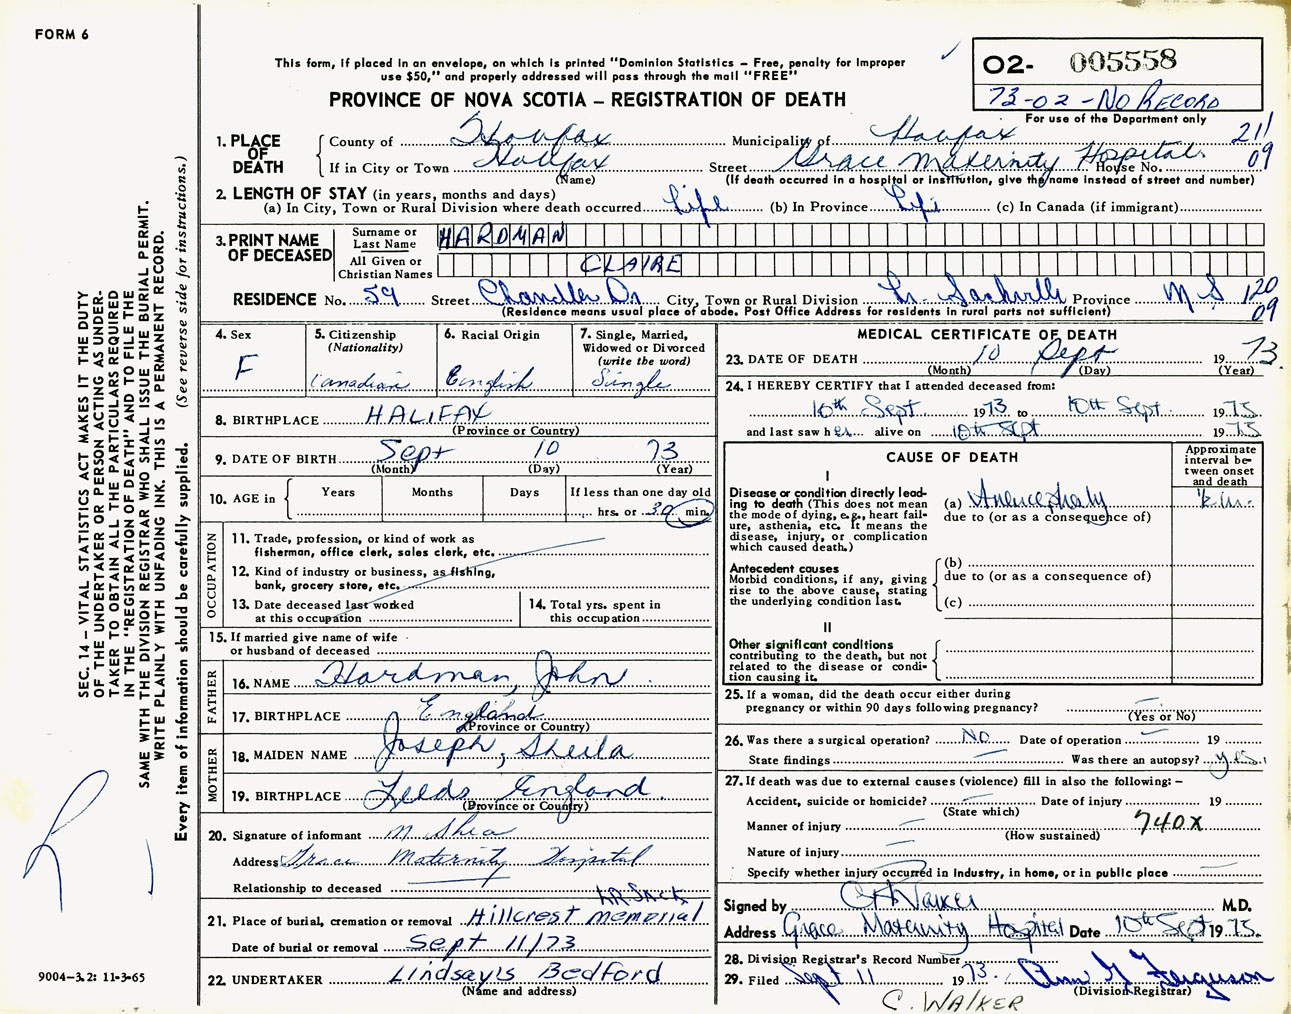 FORM 6
This form, if placed in an envelope, on which is printed "Dominion Statistics – Free, penalty for improper
use $50," and properly addressed will pass through the mail "FREE"
PROVINCE OF NOVA SCOTIA – REGISTRATION OF DEATH
O2- 005558
73-02 - NO RECORD
For use of the Department only
1. PLACE OF DEATH
County of Halifax Municipality of Halifax 211
If in City or Town Halifax Street Grace Maternity Hospital House No. 09
(Name) (If death occurred in a hospital or institution, give the name instead of street and number)
2. LENGTH OF STAY (in years, months and days)
(a) In City, Town or Rural Division where death occurred Life (b) In Province Life (c) In Canada (if immigrant)
3. PRINT NAME OF DECEASED
Surname or Last Name HARDMAN
All Given or Christian Names CLAIRE
RESIDENCE No. 59 Street Chandler Dr City, Town or Rural Division Lr. Sackville Province N S 120
(Residence means usual place of abode. Post Office Address for residents in rural parts not sufficient) 09
4. Sex F
5. Citizenship (Nationality) Canadian
6. Racial Origin English
7. Single, Married, Widowed or Divorced (write the word) Single
8. BIRTHPLACE HALIFAX
(Province or Country)
9. DATE OF BIRTH Sept 10 73
(Month) (Day) (Year)
10. AGE in Years Months Days If less than one day old
hrs. or 30 min.
OCCUPATION
11. Trade, profession, or kind of work as
fisherman, office clerk, sales clerk, etc.
12. Kind of industry or business, as fishing,
bank, grocery store, etc.
13. Date deceased last worked
at this occupation
14. Total yrs. spent in
this occupation
15. If married give name of wife
or husband of deceased
FATHER
16. NAME Hardman, John
17. BIRTHPLACE England
(Province or Country)
MOTHER
18. MAIDEN NAME Joseph, Sheila
19. BIRTHPLACE Leeds England
(Province or Country)
20. Signature of informant M. Shea
Address Grace Maternity Hospital
Relationship to deceased
LR SACK
21. Place of burial, cremation or removal Hillcrest Memorial
Date of burial or removal Sept 11/73
22. UNDERTAKER Lindsay's Bedford
(Name and address)
MEDICAL CERTIFICATE OF DEATH
23. DATE OF DEATH 10 Sept 1973
(Month) (Day) (Year)
24. I HEREBY CERTIFY that I attended deceased from:
10th Sept 1973 to 10th Sept 1973
and last saw her alive on 10th Sept 1973
CAUSE OF DEATH
Approximate
interval be-
tween onset
and death
I
Disease or condition directly lead-
ing to death (This does not
mean the mode of dying, e.g., heart fail-
ure, asthenia, etc. It means the
disease, injury, or complication
which caused death.)
(a) Anencephaly
due to (or as a consequence of)
Antecedent causes
Morbid conditions, if any, giving
rise to the above cause, stating
the underlying condition last.
(b)
due to (or as a consequence of)
(c)
II
Other significant conditions
contributing to the death, but not
related to the disease or condi-
tion causing it.
25. If a woman, did the death occur either during
pregnancy or within 90 days following pregnancy?
(Yes or No)
26. Was there a surgical operation? NO Date of operation 19
State findings Was there an autopsy? yes.
27. If death was due to external causes (violence) fill in also the following: –
Accident, suicide or homicide? Date of injury 19
(State which)
Manner of injury 740X
(How sustained)
Nature of injury
Specify whether injury occurred in industry, in home, or in public place
Signed by C H Walker M.D.
Address Grace Maternity Hospital Date 10th Sept 1973.
28. Division Registrar's Record Number
29. Filed Sept 11 1973. Ann G Ferguson
(Division Registrar)
C. WALKER
SEC. 14 – VITAL STATISTICS ACT MAKES IT THE DUTY
OF THE UNDERTAKER OR PERSON ACTING AS UNDER-
TAKER TO OBTAIN ALL THE PARTICULARS REQUIRED
IN THE "REGISTRATION OF DEATH" AND TO FILE THE
SAME WITH THE DIVISION REGISTRAR WHO SHALL ISSUE THE BURIAL PERMIT.
WRITE PLAINLY WITH UNFADING INK. THIS IS A PERMANENT RECORD.
Every item of information should be carefully supplied. (See reverse side for instructions.)
9004-3.2: 11-3-65